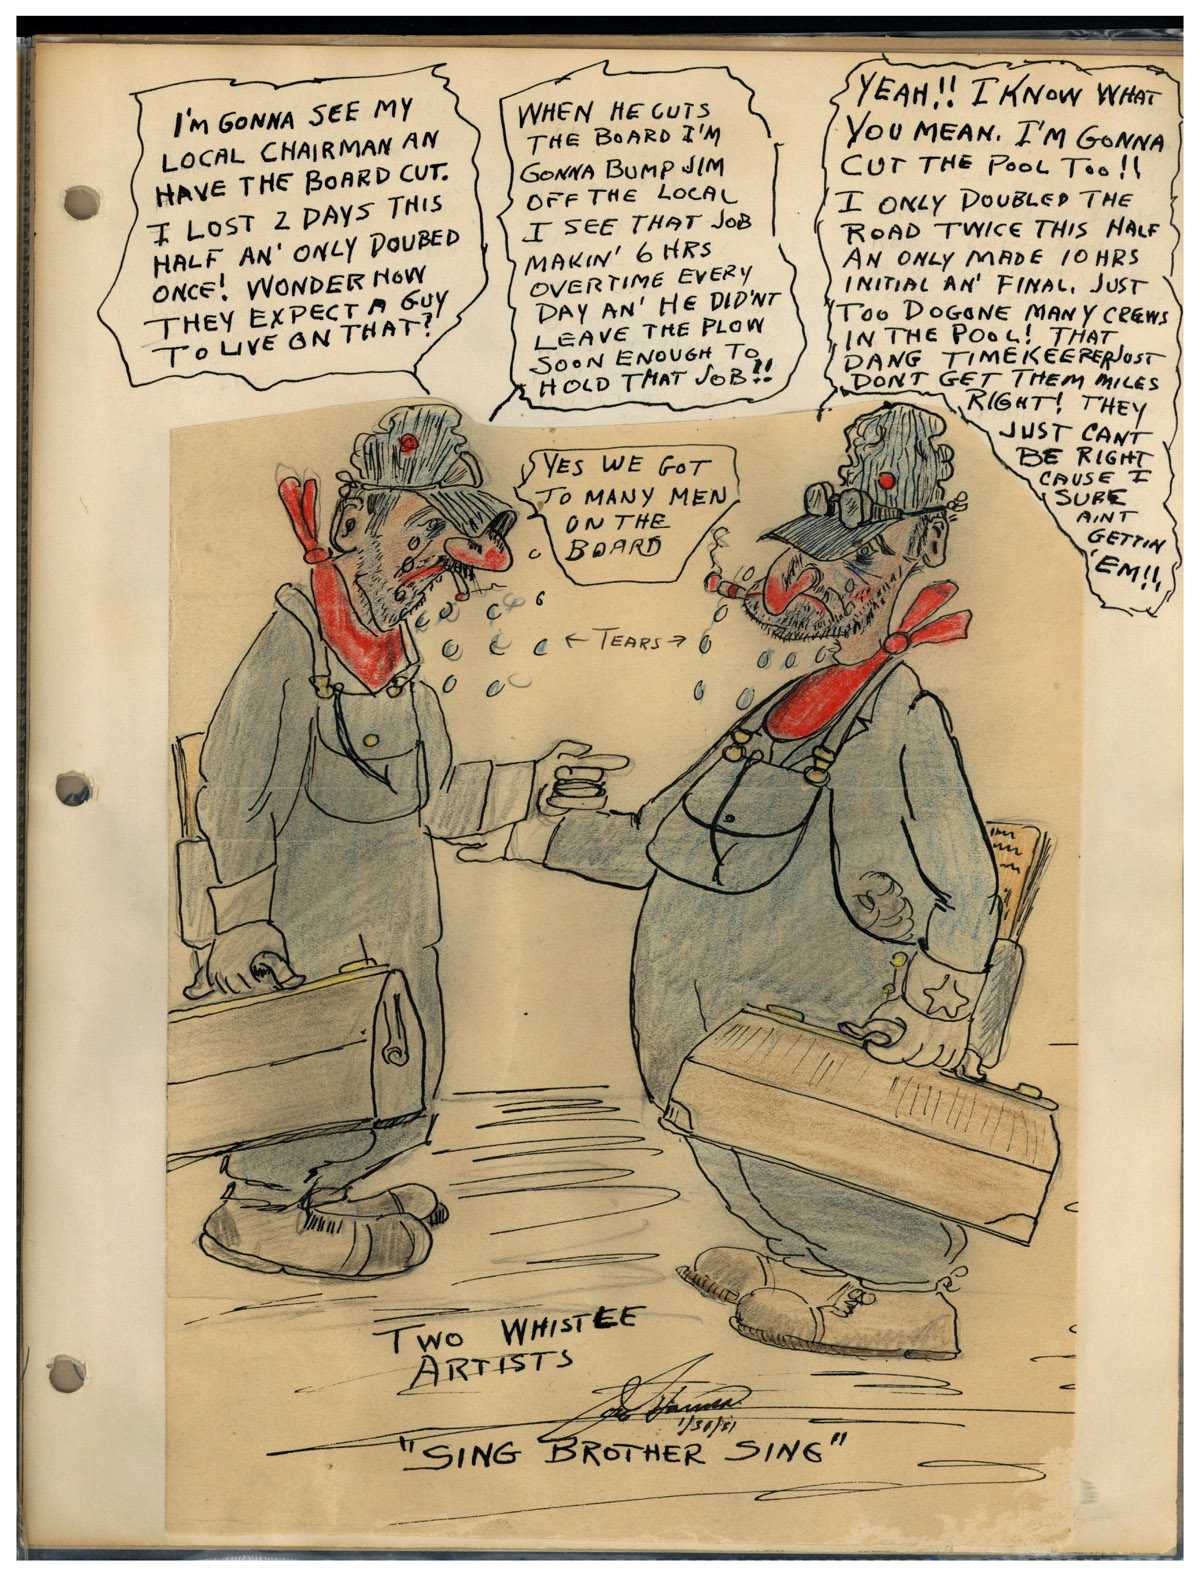 I'M GONNA SEE MY
LOCAL CHAIRMAN AN
HAVE THE BOARD CUT.
I LOST 2 DAYS THIS
HALF AN' ONLY DOUBED
ONCE! WONDER HOW
THEY EXPECT A GUY
TO LIVE ON THAT?
WHEN HE CUTS
THE BOARD I'M
GONNA BUMP JIM
OFF THE LOCAL
I SEE THAT JOB
MAKIN' 6 HRS
OVERTIME EVERY
DAY AN' HE DID'NT
LEAVE THE PLOW
SOON ENOUGH TO
HOLD THAT JOB!!
YEAH!! I KNOW WHAT
YOU MEAN. I'M GONNA
CUT THE POOL TOO!!
I ONLY DOUBLED THE
ROAD TWICE THIS HALF
AN ONLY MADE 10 HRS
INITIAL AN' FINAL. JUST
TOO DOGONE MANY CREWS
IN THE POOL! THAT
DANG TIMEKEEPER JUST
DON'T GET THEM MILES
RIGHT! THEY
JUST CANT
BE RIGHT
CAUSE I
SURE
AINT
GETTIN
'EM!!
YES WE GOT
TO MANY MEN
ON THE
BOARD
← TEARS →
TWO WHISTLE
ARTISTS
1/30/51
"SING BROTHER SING"